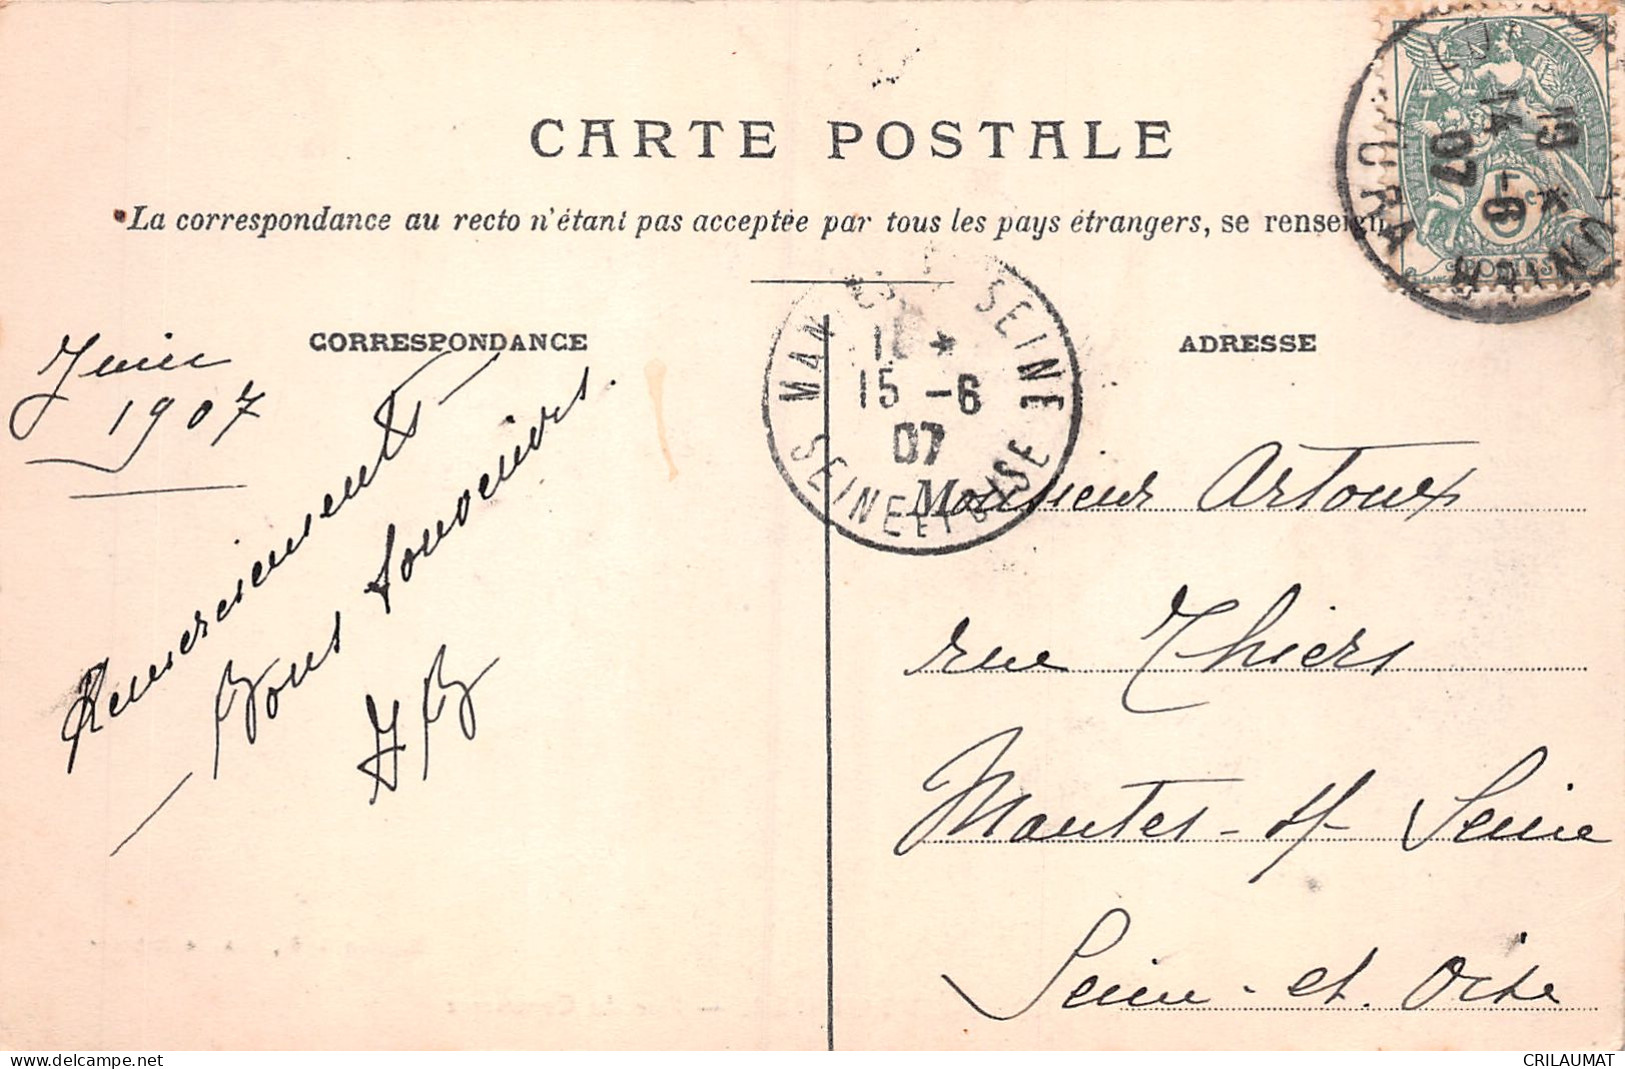 CARTE POSTALE
La correspondance au recto n'étant pas acceptée par tous les pays étrangers, se renseign
CORRESPONDANCE
ADRESSE
Juin
1907
Remerciements
Bons souvenirs.
JB
MAN SEINE
15 -6
07
SEINE ET OISE
19
14 -6
07
MUNICH
POSTES
Monsieur Artoux
rue Thiers
Mantes - s/ Seine
Seine - et. Oise
www.delcampe.net
CRILAUMAT